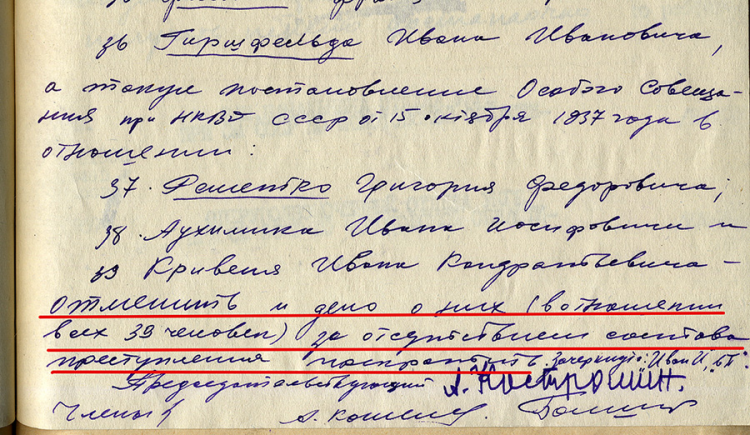 36 Гиршфельда Ивана Ивановича,
а также постановление Особого Совеща-
ния при НКВД СССР от 15 октября 1937 года в
отношении:
37. Фоменко Григория Федоровича;
38. Лухимика Ивана Иосифовича и
39 Кривеля Ивана Кондратьевича –
отменить и дело о них (в отношении
всех 39 человек) за отсутствием состава
преступления прекратить. Зачеркнуто: "Иван И",
Председательствующий А. Костромин.
Члены